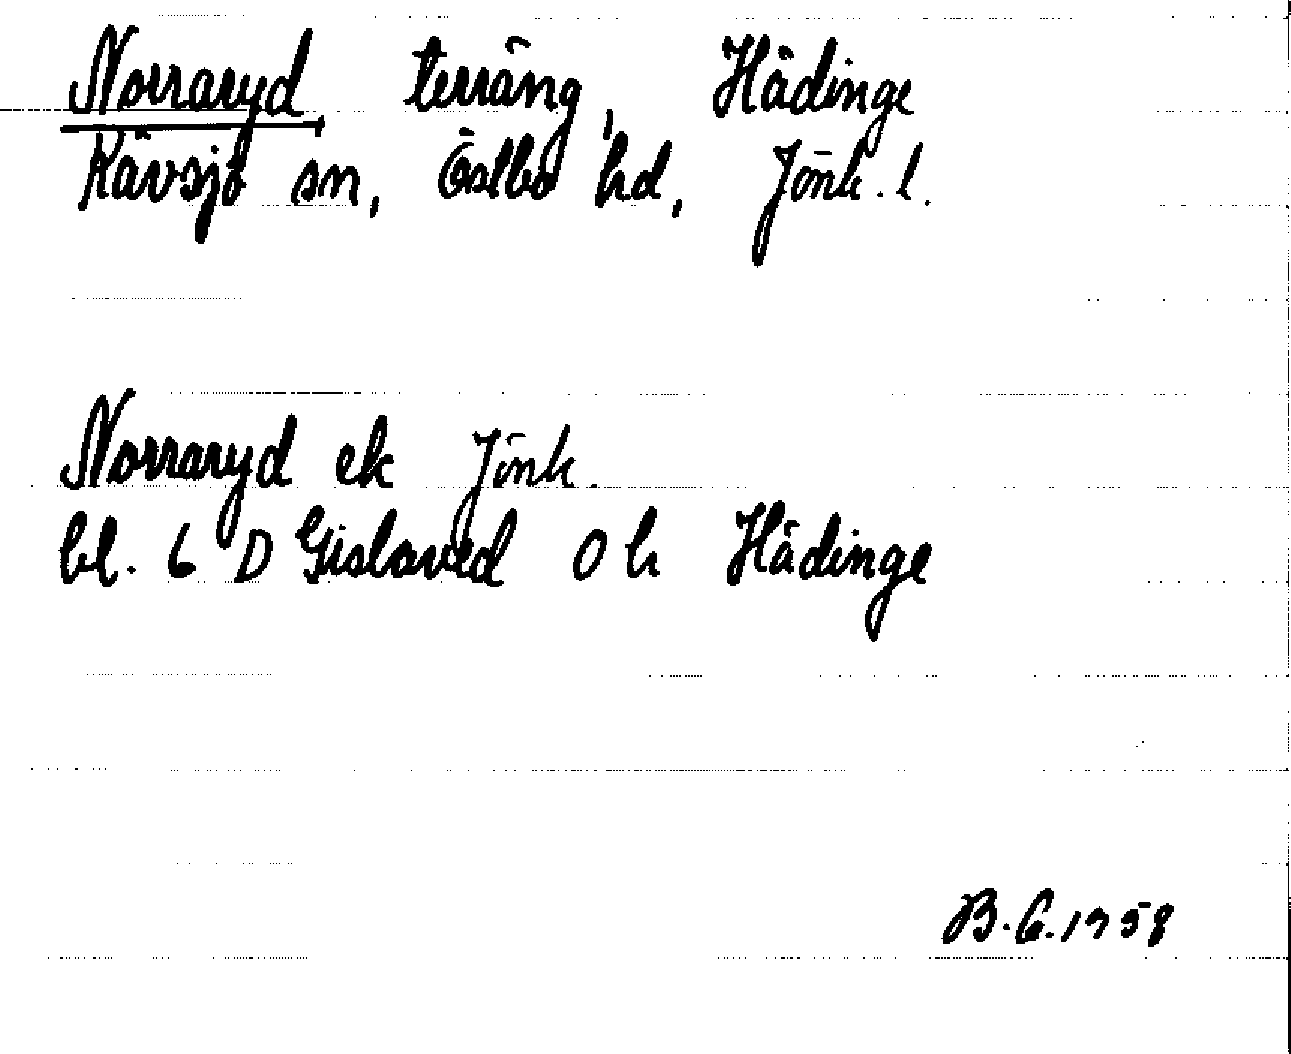 Norraryd, terräng, Hädinge
Kävsjö sn, Östbo hd, Jönk. l.
Norraryd ek Jönk.
bl. 6 D Gislaved 0 h Hädinge
B. G. 1958